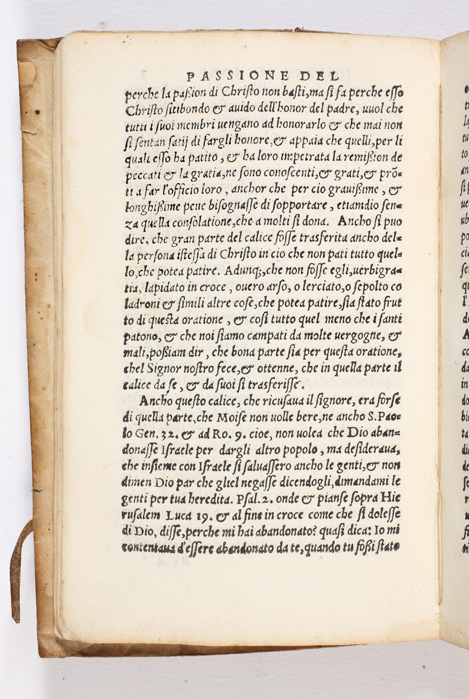 PASSIONE DEL
perche la paßion di Christo non basti, ma si fa perche esso
Christo sitibondo & auido dell'honor del padre, uuol che
tutti i suoi membri uengano ad honorarlo & che mai non
si sentan satij di fargli honore, & appaia che quelli, per li
quali esso ha patito, & ha loro impetrata la remißion de
peccati & la gratia, ne sono conoscenti, & grati, & prō-
ti a far l'officio loro, anchor che per cio grauißime, &
longhißime pene bisognasse di sopportare, etiamdio sen-
za quella consolatione, che a molti si dona. Ancho si puo
dire, che gran parte del calice fosse trasferita ancho del-
la persona istessa di Christo in cio che non pati tutto quel-
lo, che potea patire. Adunq;, che non fosse egli, uerbigra-
tia, lapidato in croce, ouero arso, o lerciato, o sepolto co
ladroni & simili altre cose, che potea patire, sia stato frut
to di questa oratione, & cosi tutto quel meno che i santi
patono, & che noi siamo campati da molte uergogne, &
mali, poßiam dir, che bona parte sia per questa oratione,
chel Signor nostro fece, & ottenne, che in quella parte il
calice da se, & da suoi si trasferisse.
Ancho questo calice, che ricusaua il signore, era forse
di quella parte, che Moise non uolle bere, ne ancho S. Pao-
lo Gen. 32. & ad Ro. 9. cioe, non uolea che Dio aban-
donasse Israele per dargli altro popolo, ma desideraua,
che insieme con Israele si saluassero ancho le genti, & non
dimen Dio par che gliel negasse dicendogli, dimandami le
genti per tua heredita. Psal. 2. onde & pianse sopra Hie
rusalem Luca 19. & al fine in croce come che si dolesse
di Dio, disse, perche mi hai abandonato? quasi dica: Io mi
contentaua d'essere abandonato da te, quando tu foßi stato